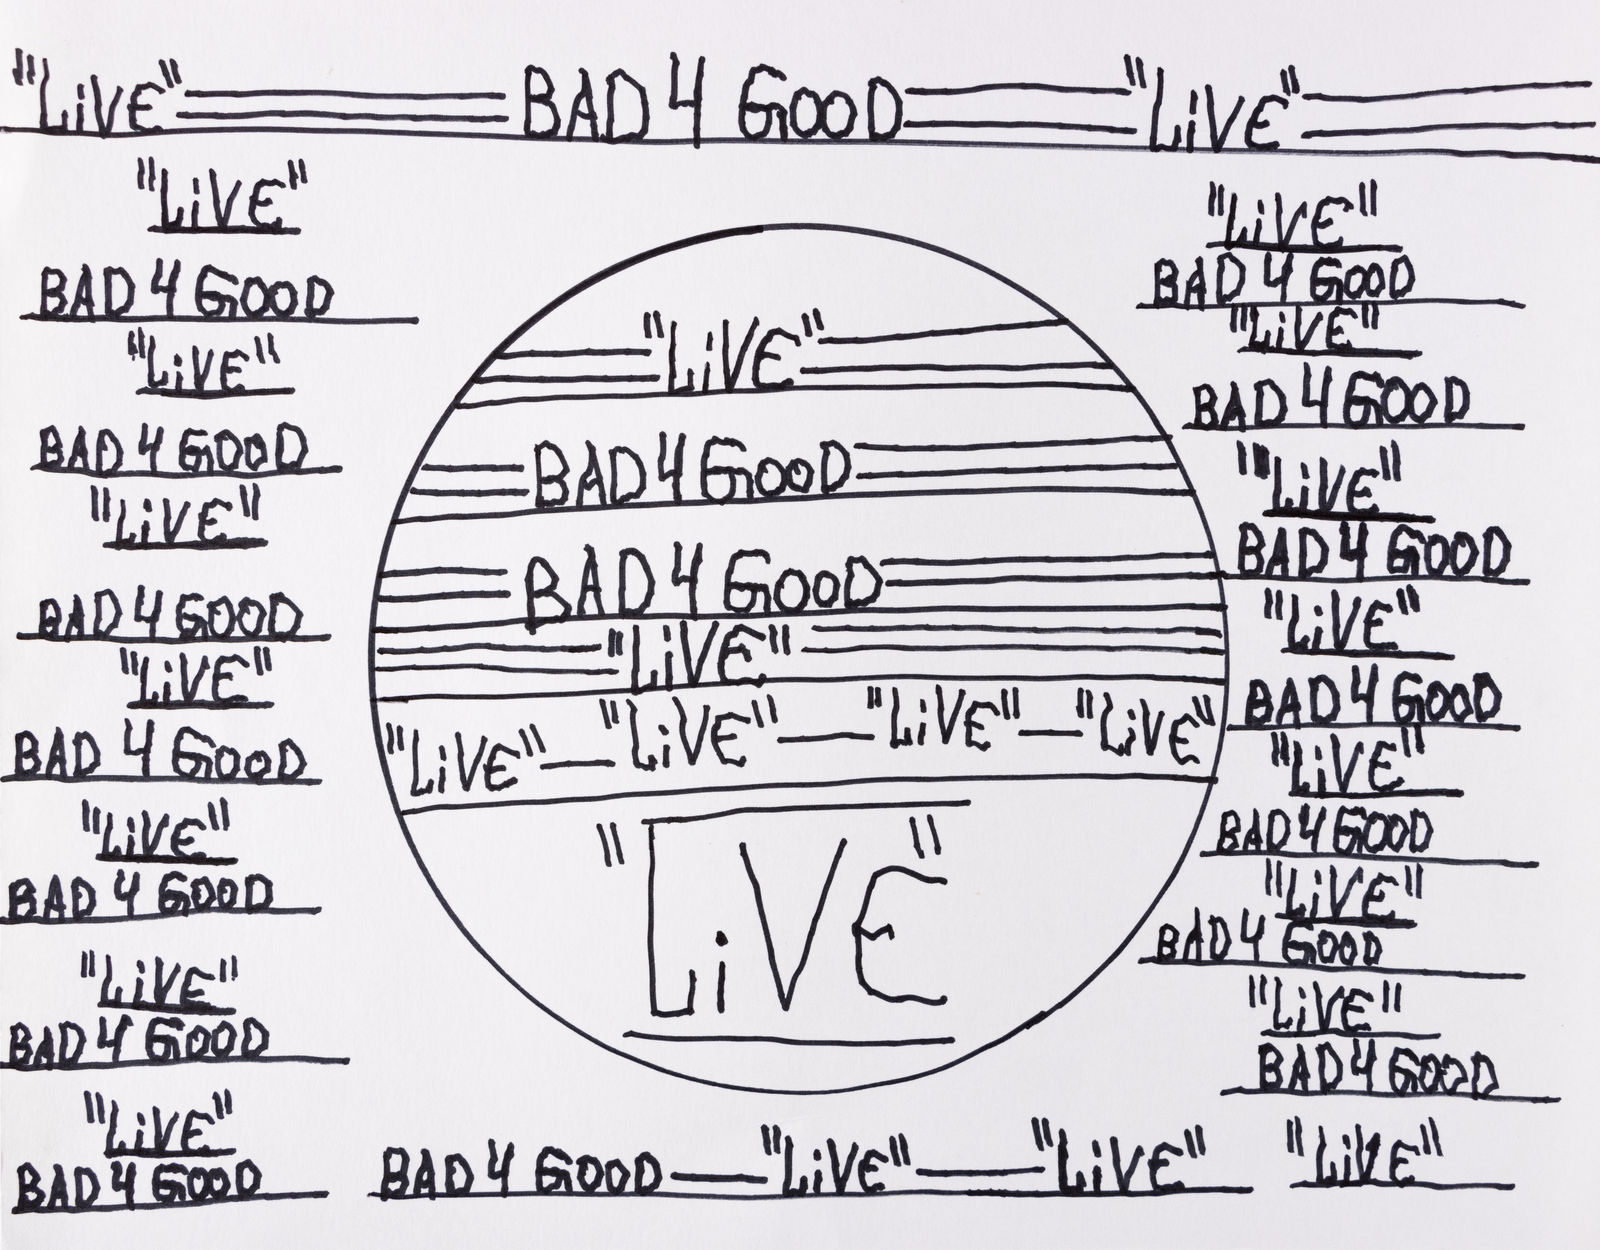 "LiVE" BAD 4 GOOD "LiVE"
"LiVE"
BAD 4 GOOD
"LiVE"
BAD 4 GOOD
"LiVE"
BAD 4 GOOD
"LiVE"
BAD 4 GOOD
"LiVE"
BAD 4 GOOD
"LiVE"
BAD 4 GOOD
"LiVE"
BAD 4 GOOD
"LiVE"
BAD 4 GOOD
BAD 4 GOOD
"LiVE"
"LiVE" — "LiVE" — "LiVE" — "LiVE"
"LiVE"
"LiVE"
BAD 4 GOOD
"LiVE"
BAD 4 GOOD
"LiVE"
BAD 4 GOOD
"LiVE"
BAD 4 GOOD
"LiVE"
BAD 4 GOOD
"LiVE"
BAD 4 GOOD
"LiVE"
BAD 4 GOOD
BAD 4 GOOD — "LiVE" — "LiVE" "LiVE"